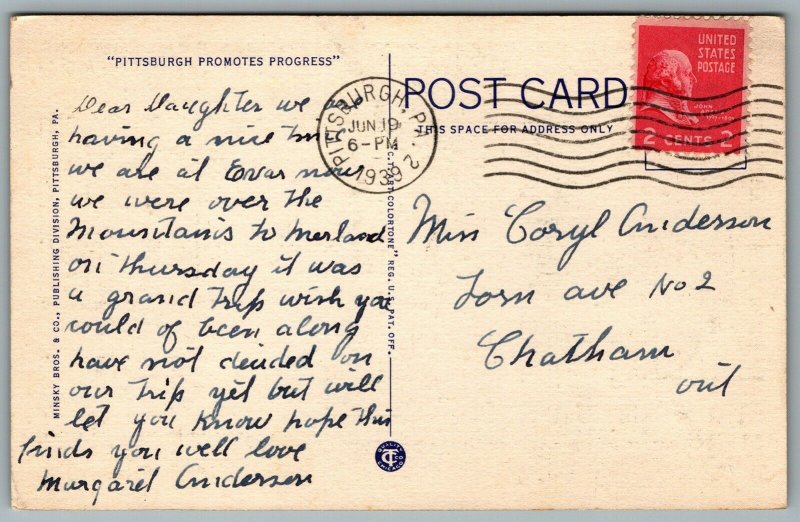 "PITTSBURGH PROMOTES PROGRESS"
Dear Daughter we are
having a nice time
we are at Evas now
we were over the
Mountains to Merland
on thursday it was
a grand trip wish you
could of been along
have not decided on
our trip yet but will
let you know hope this
finds you well love
Margaret Anderson
MINSKY BROS. & CO., PUBLISHING DIVISION, PITTSBURGH, PA.
C.T. ART-COLORTONE" REG. U.S. PAT. OFF.
QUALITY
CT
CHICAGO
PITTSBURGH, PA. 2
JUN 19
6-PM
1939
POST CARD
THIS SPACE FOR ADDRESS ONLY
UNITED
STATES
POSTAGE
JOHN
2 CENTS 2
Miss Coryl Anderson
Lorn ave No 2
Chatham
ont